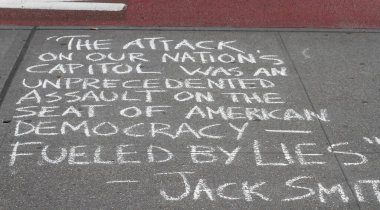 "THE ATTACK
ON OUR NATION'S
CAPITOL WAS AN
UNPRECEDENTED
ASSAULT ON THE
SEAT OF AMERICAN
DEMOCRACY —
FUELED BY LIES"
— JACK SMIT